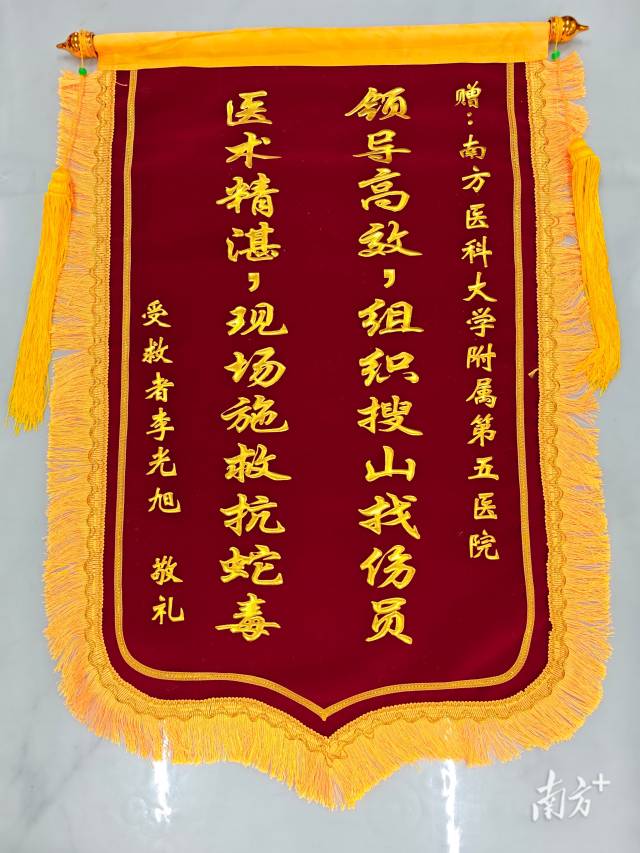 赠：南方医科大学附属第五医院
领导高效，组织搜山找伤员
医术精湛，现场施救抗蛇毒
受救者李光旭 敬礼
南方+